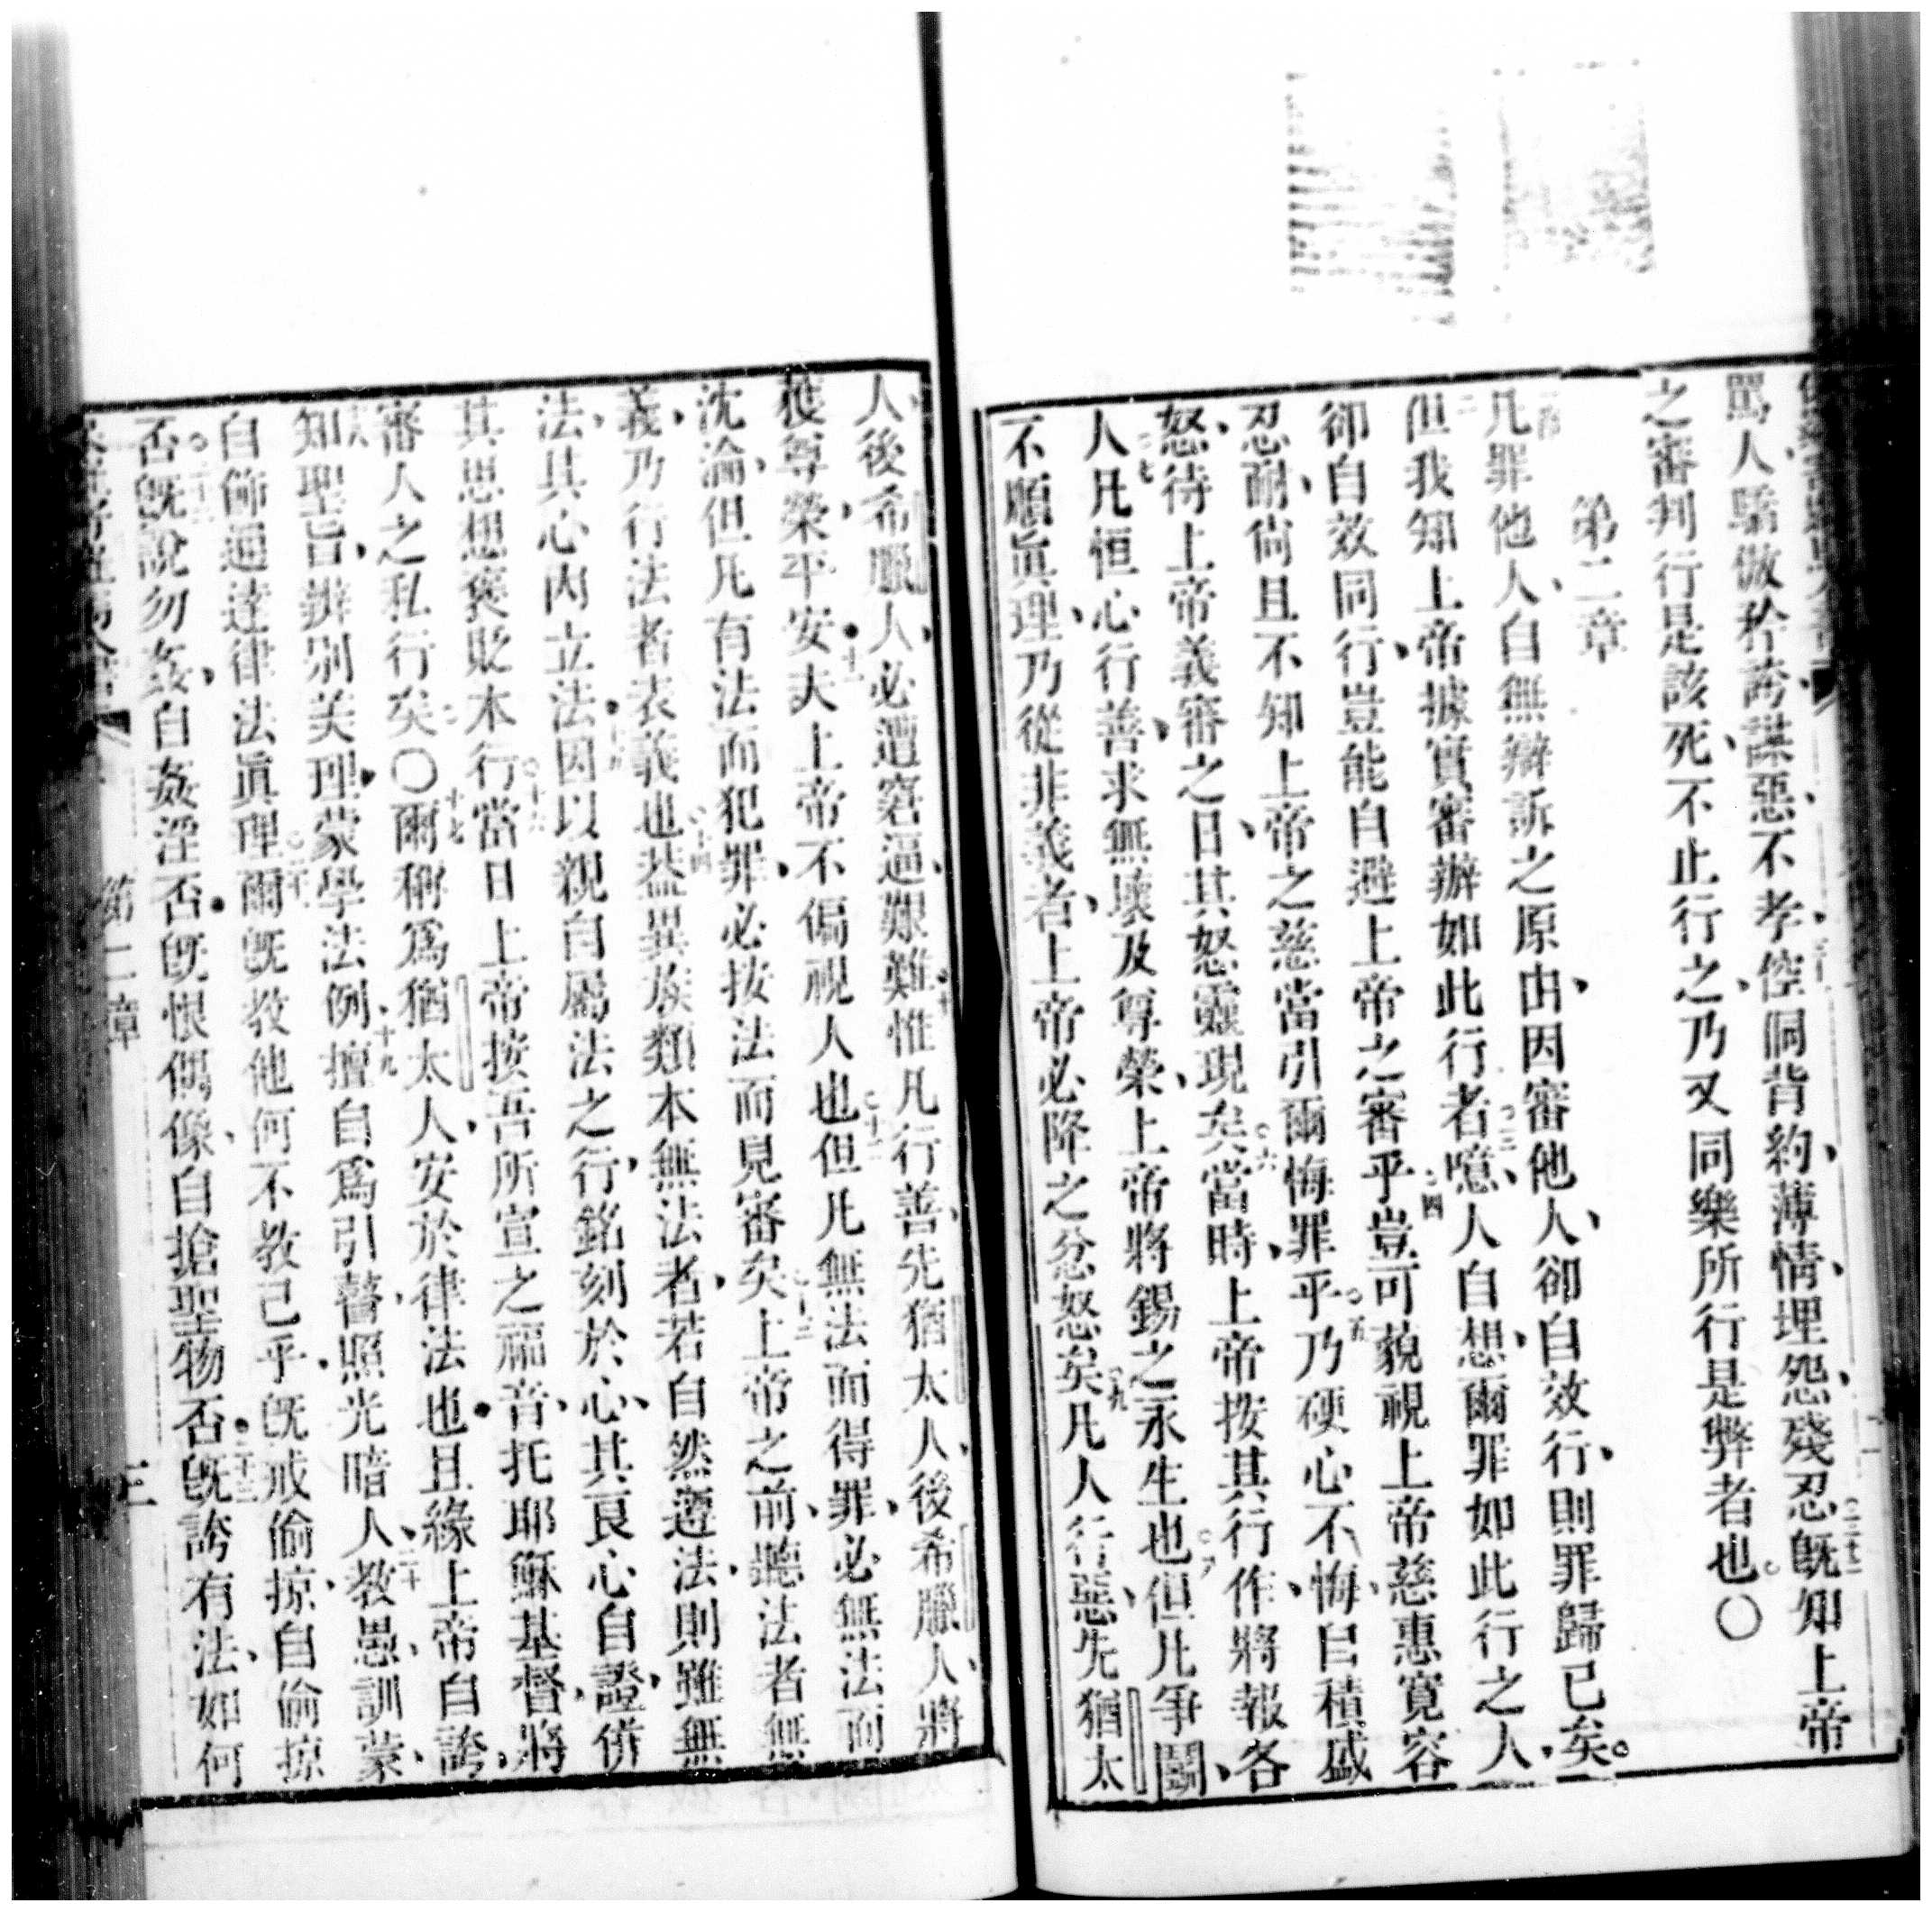 罵人、驕傲矜誇、謀惡、不孝、悾侗背約、薄情、埋怨、殘忍、旣知上帝
之審判行是該死、不止行之、乃又同樂所行是弊者也。〇
第二章
凡罪他人、自無辯訴之原由、因審他人、卻自效行、則罪歸己矣。
但我知上帝據實審辦如此行者、噫、人自想、爾罪如此行之人、
卻自效同行、豈能自避上帝之審乎、豈可藐視上帝慈惠寬容
忍耐、尙且不知上帝之慈當引爾悔罪乎。乃硬心不悔、曰積盛
怒、待上帝義審之日、其怒靈現矣。當時、上帝按其行作、將報各
人。凡恒心行善、求無壞及尊榮、上帝將錫之永生也。但凡爭鬭、
不願眞理、乃從非義者、上帝必降之忿怒矣。凡人行惡、先猶太
人、後希臘人、必遭窘逼、艱難、惟凡行善、先猶太人、後希臘人、將
獲尊榮平安。夫上帝不偏視人也。但凡無法而得罪、必無法而
沈淪、但凡有法而犯罪、必按法而見審矣。上帝之前、聽法者無
義、乃行法者表義也。葢異族類本無法者、若自然遵法、則雖無
法、其心內立法、因以親自屬法之行、銘刻於心、其良心自證、併
其思想褒貶本行。當日上帝按吾所宣之福音、托耶穌基督、將
審人之私行矣。〇爾稱爲猶太人、安於律法也。且緣上帝自誇、
知聖旨、辨别美理、蒙學法例、擅自爲引瞽、照光暗人、教愚、訓蒙、
自飾通達律法眞理。爾旣教他何不教己乎、旣戒偷掠、自偷掠
否。旣說勿姦、自姦淫否。旣恨偶像、自搶聖物否。旣誇有法、如何
第二章
三